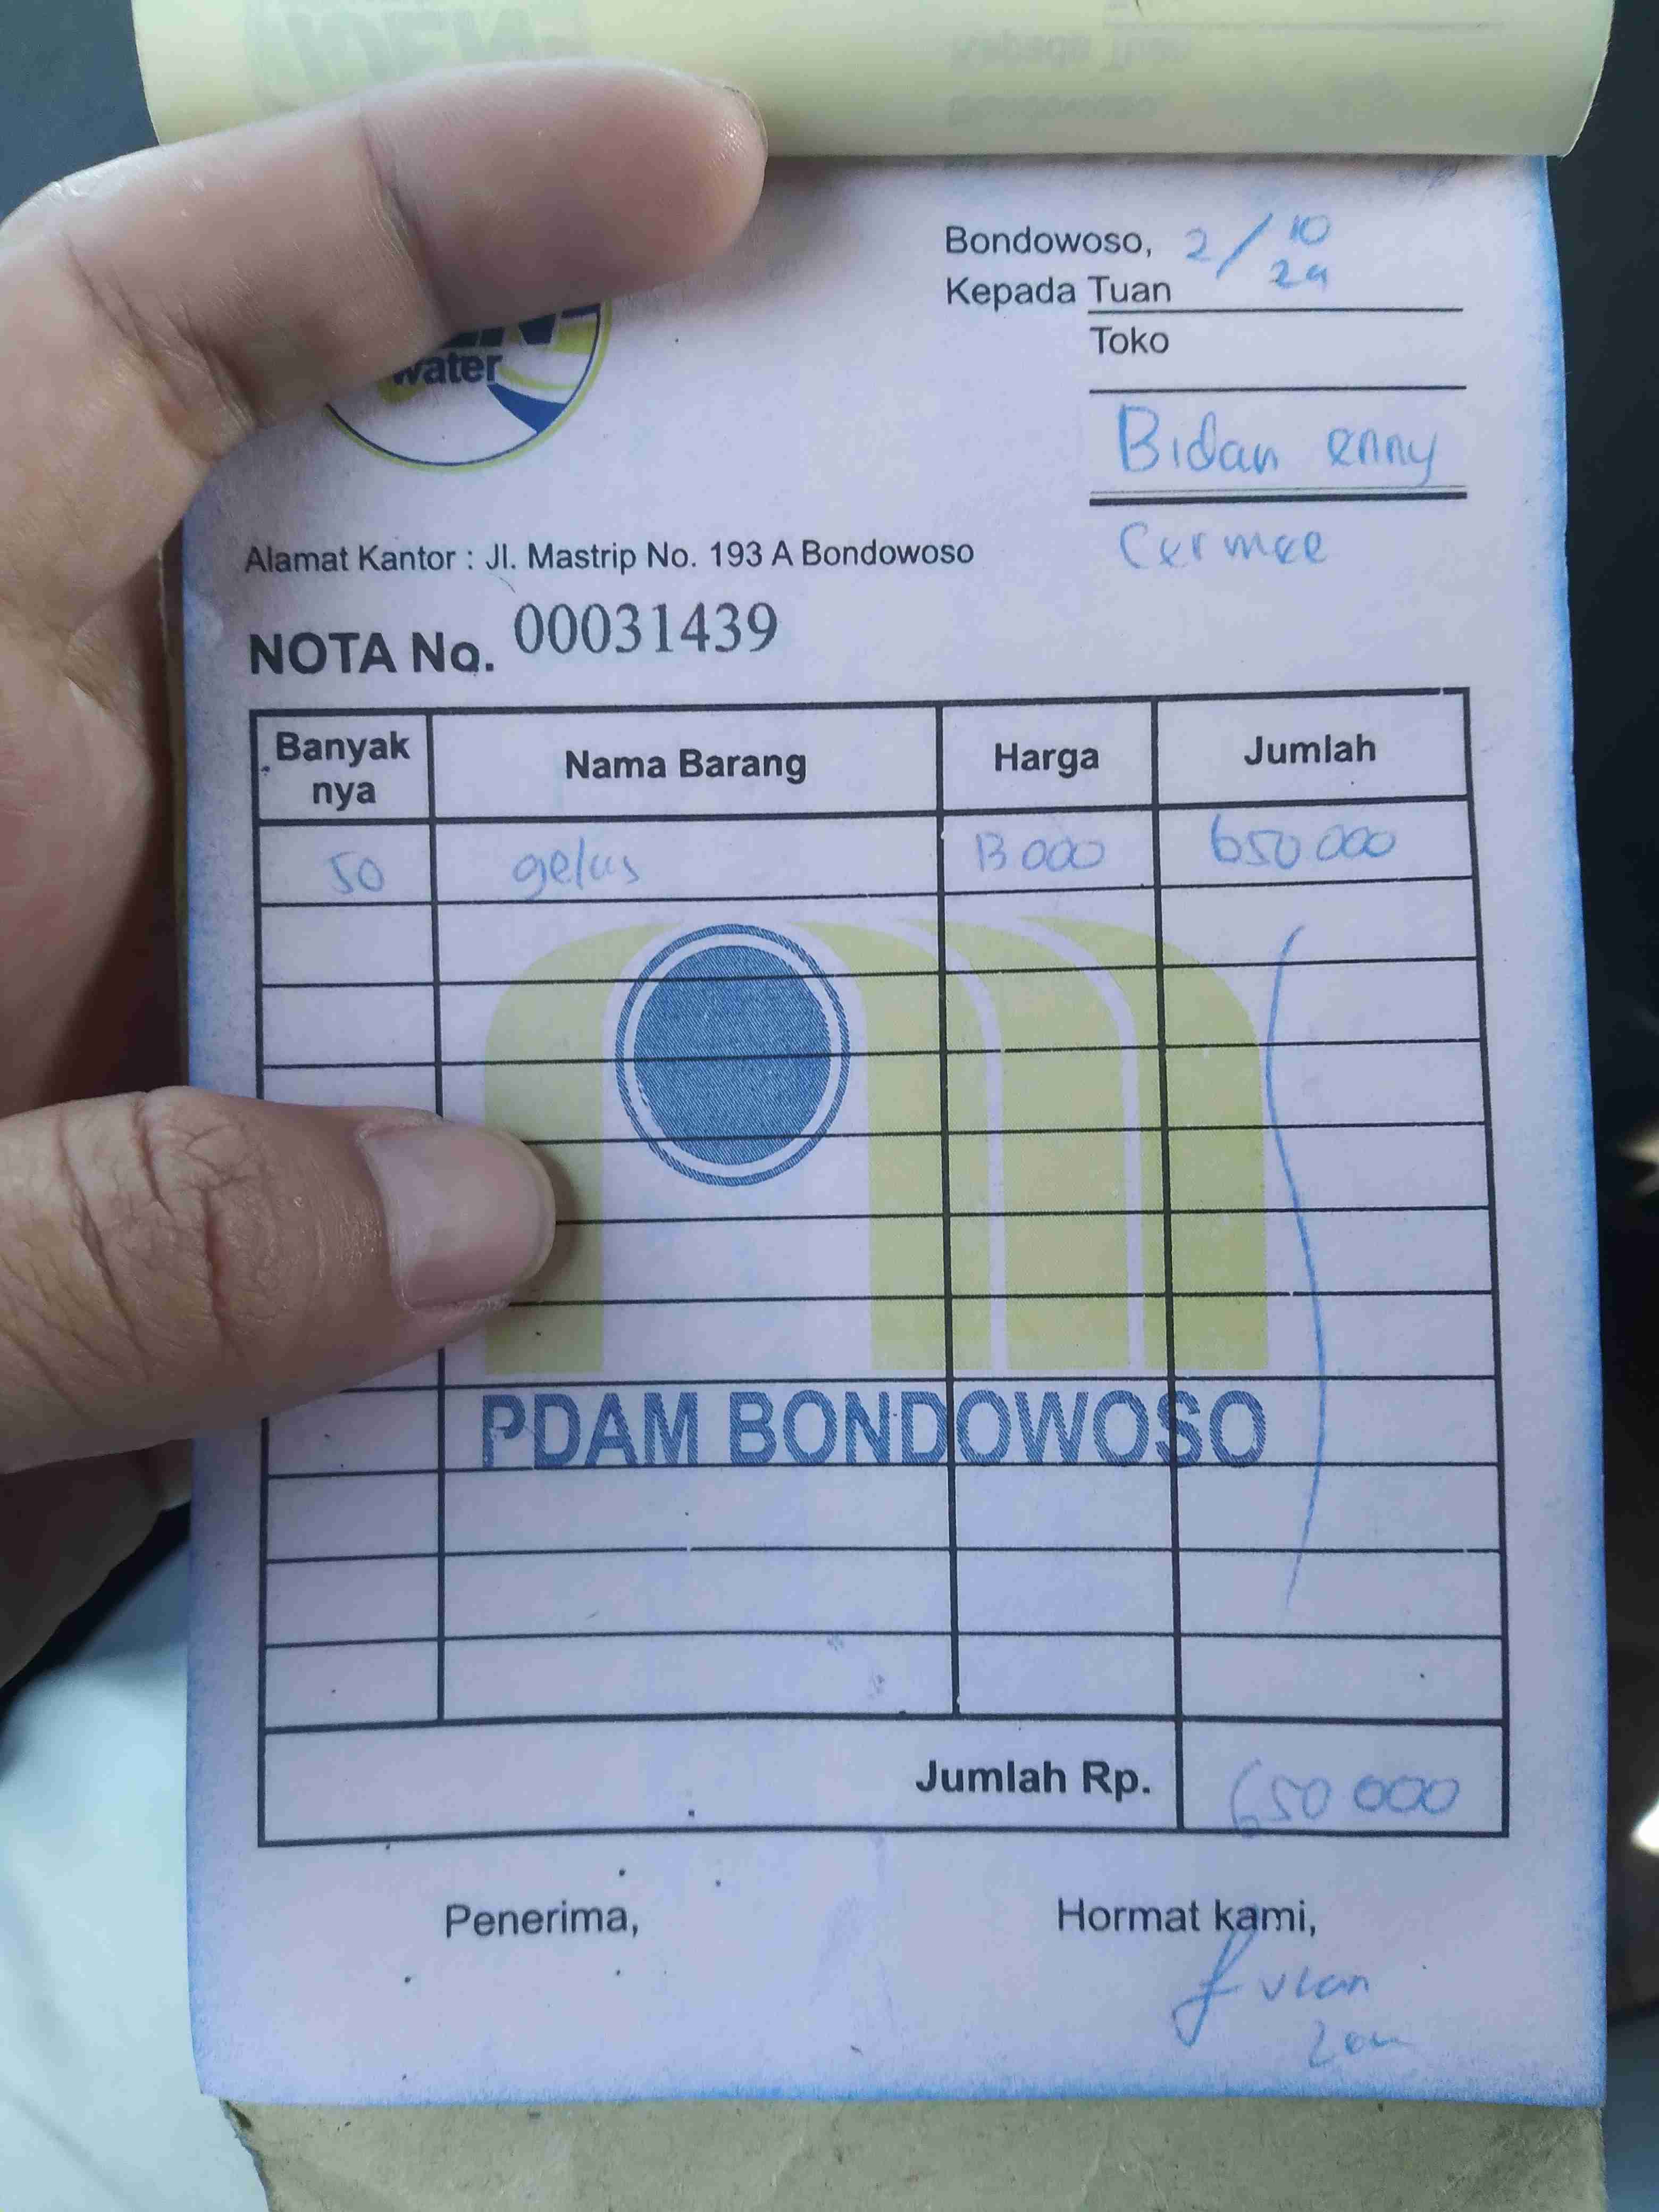 water
Bondowoso, 2/10
24
Kepada Tuan
Toko
Bidan enny
Cermee
Alamat Kantor : Jl. Mastrip No. 193 A Bondowoso
NOTA No. 00031439
Banyak nya Nama Barang Harga Jumlah
50 gelas 13 000 650 000
PDAM BONDOWOSO
Jumlah Rp. 650 000
Penerima, Hormat kami,